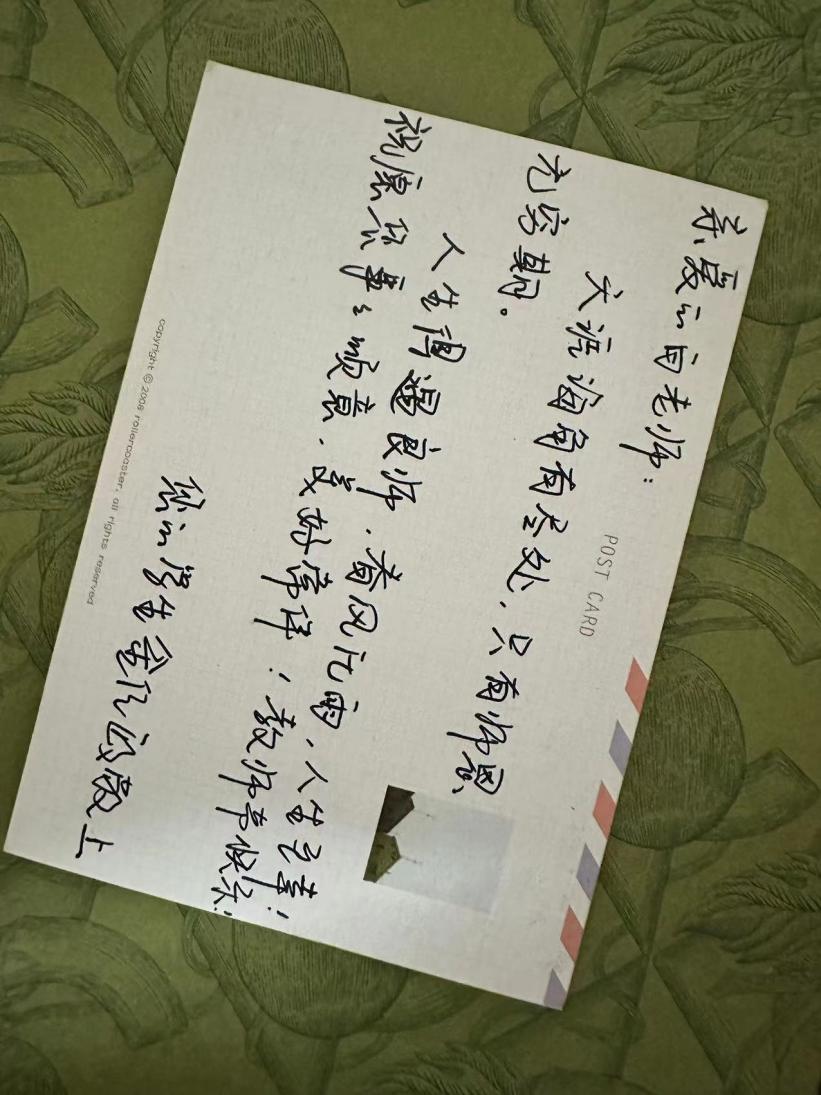 亲爱的白老师:
POST CARD
天涯海角有尽处,只有师恩
无穷期。
人生得遇良师,春风化雨,人生之幸!
祝愿您事々顺意,美好常伴!教师节快乐!
您的学生 敬上
copyright © 2008 rollercoaster, all rights reserved